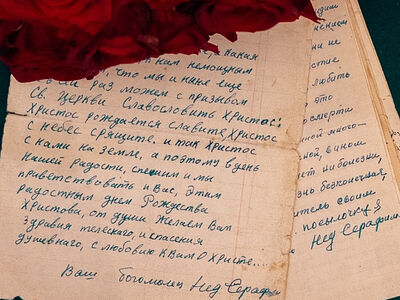 нам немощным
что мы и ныне еще
раз можем с призывом
Св. Церкви Славословить Христос:
Христос рождается славите, Христос
с небес срящите, и так Христос
с нами на земле, а поэтому в день
нашей радости, спешим и мы
приветствовать и Вас, этим
радостным днем Рождества
Христова, от души желаем Вам
здравия телеснаго, и спасения
душевнаго, с любовию к Вам о Христе....
Ваш богомолец Нед Серафим
дишь
нием
ни не
стие
любить
это
смерти
ной много-
ной, в ином
нет ни болезни,
знь бесконечная,
итель своим
посылочку з
Нед Серафим